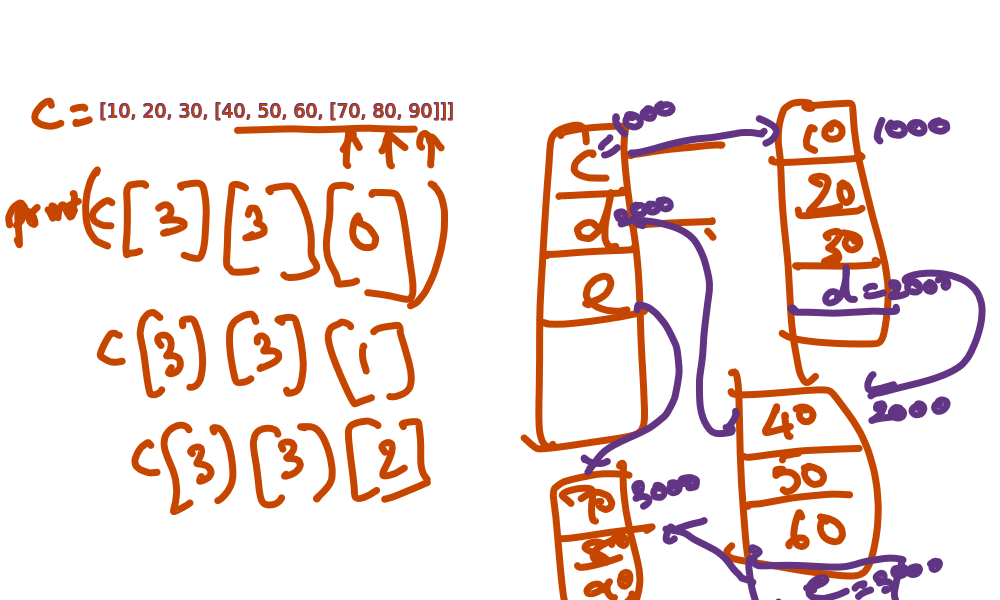 c = [10, 20, 30, [40, 50, 60, [70, 80, 90]]]
print(c[3][3][0])
c[3][3][1]
c[3][3][2]
c = 1000
d 2000
e
10 1000
20
30
d = 2000
2000
40
50
60
e = 3000
70 3000
80
90